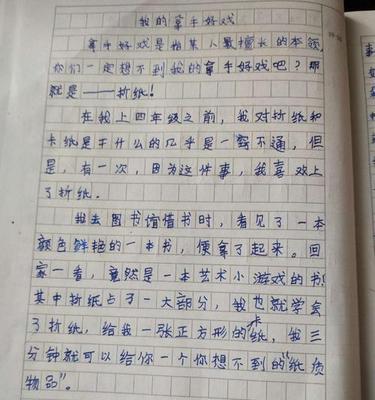 我的拿手好戏
拿手好戏是指某人最擅长的本领,
你们一定想不到我的拿手好戏吧?那
就是——折纸!
在我上四年级之前,我对折纸和
卡纸是干什么的几乎是一窍不通,但
是,有一次,因为这件事,我喜欢上
了折纸。
我去图书馆借书时,看见了一本
颜色鲜艳的一本书,便拿了起来。回
家一看,竟然是一本艺术小游戏的书!
其中折纸占了一大部分,我也就学会
了折纸,给我一张正方形的卡纸,我三
分钟就可以给你一个你想不到的“纸质
物品”。